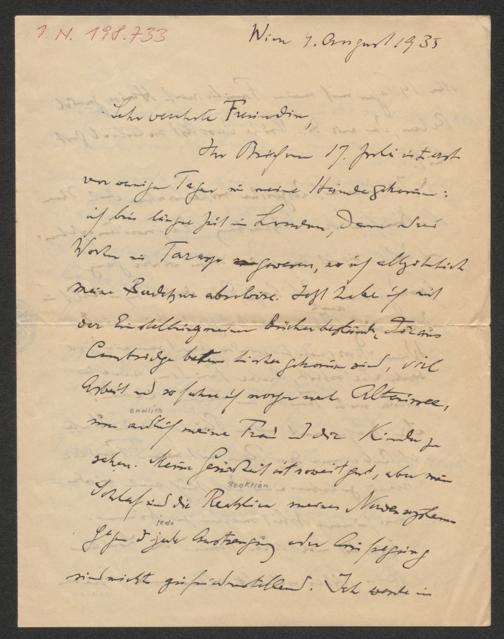 I. N. 198.733
Wien 9. August 1935
Sehr verehrte Freundin,
Ihr Brief vom 17. Juli ist erst
vor wenigen Tagen in meine Hände gekommen:
ich bin längere Zeit in London, dann drei
Wochen in gewesen, wo ich alljährlich
meine Badekur absolviere. Jetzt habe ich mit
der Einstellung meiner Bücher die aus
Cambridge hierher gekommen sind, viel
Arbeit und so fahre ich morgen nach Altaussee,
endlich
um endlich meine Frau und die Kinder zu
sehen. Meine Gesundheit ist soweit gut, aber mein
Reaktion
Schlaf und die Reaktion meines Nervensystems
jede
gegen jede Anstrengung oder Aufregung
sind nicht zufriedenstellend. Ich werde in